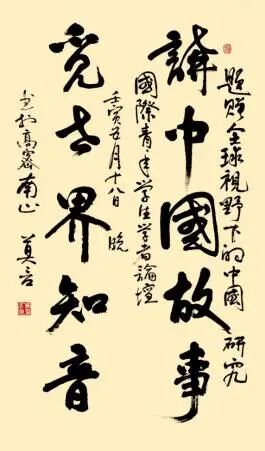 題贈全球視野下的中國研究
講中國故事
國際青年学生学者論壇
覓世界知音
壬寅五月十八日晚
书於高密南山 莫言